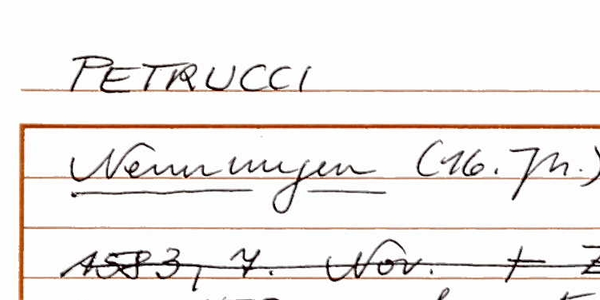 PETRUCCI
Nennungen (16. Jh.)
1583, 7. Nov. †